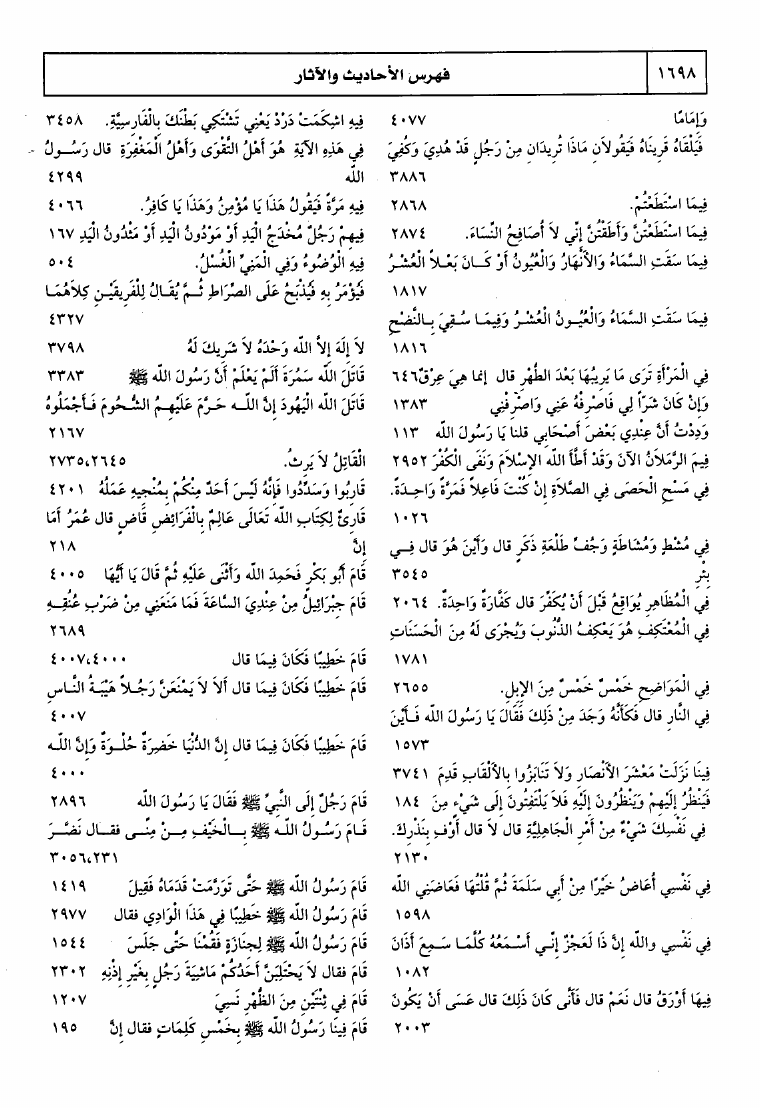 ١٦٩٨
فهرس الأحاديث والآثار
وَإِمَامًا ٤٠٧٧
فَيَلْقَاهُ قَرِينَاهُ فَيَقُولاَنِ مَاذَا تُرِيدَانِ مِنْ رَجُلٍ قَدْ هُدِيَ وَكُفِيَ
٣٨٨٦
فِيمَا اسْتَطَعْتُمْ. ٢٨٦٨
فِيمَا اسْتَطَعْتُنَّ وَأَطَقْتُنَّ إِنِّي لاَ أُصَافِحُ النِّسَاءَ. ٢٨٧٤
فِيمَا سَقَتِ السَّمَاءُ وَالأَنْهَارُ وَالْعُيُونُ أَوْ كَانَ بَعْلاً الْعُشْرُ
١٨١٧
فِيمَا سَقَتِ السَّمَاءُ وَالْعُيُونُ الْعُشْرُ وَفِيمَا سُقِيَ بِالنَّضْحِ
١٨١٦
فِي الْمَرْأَةِ تَرَى مَا يَرِيبُهَا بَعْدَ الطُّهْرِ قال إنما هِيَ عِرْقٌ ٦٤٦
وَإِنْ كَانَ شَرّاً لِي فَاصْرِفْهُ عَنِي وَاصْرِفْنِي ١٣٨٣
وَدِدْتُ أَنَّ عِنْدِي بَعْضَ أَصْحَابِي قلنا يَا رَسُولَ الله ١١٣
فِيمَ الرَّمَلاَنُ الآنَ وَقَدْ أَطَّأَ الله الإِسْلاَمَ وَنَفَى الْكُفْرَ ٢٩٥٢
فِي مَسْحِ الْحَصَى فِي الصَّلاَةِ إِنْ كُنْتَ فَاعِلاً فَمَرَّةً وَاحِدَةً.
١٠٢٦
فِي مُشْطٍ وَمُشَاطَةٍ وَجُفِّ طَلْعَةِ ذَكَرٍ قال وَأَيْنَ هُوَ قال فِي
بِئْرِ ٣٥٤٥
فِي الْمُظَاهِرِ يُوَاقِعُ قَبْلَ أَنْ يُكَفِّرَ قال كَفَّارَةٌ وَاحِدَةٌ. ٢٠٦٤
فِي الْمُعْتَكِفِ هُوَ يَعْكِفُ الذُّنُوبَ وَيُجْرَى لَهُ مِنَ الْحَسَنَاتِ
١٧٨١
فِي الْمَوَاضِحِ خَمْسٌ خَمْسٌ مِنَ الإِبِلِ. ٢٦٥٥
فِي النَّارِ قال فَكَأَنَّهُ وَجَدَ مِنْ ذَلِكَ فَقَالَ يَا رَسُولَ الله فَأَيْنَ
١٥٧٣
فِينَا نَزَلَتْ مَعْشَرَ الأَنْصَارِ وَلاَ تَنَابَزُوا بِالأَلْقَابِ قَدِمَ ٣٧٤١
فَيَنْظُرُ إِلَيْهِمْ وَيَنْظُرُونَ إِلَيْهِ فَلاَ يَلْتَفِتُونَ إِلَى شَيْءٍ مِنَ ١٨٤
فِي نَفْسِكَ شَيْءٌ مِنْ أَمْرِ الْجَاهِلِيَّةِ قال لاَ قال أَوْفِ بِنَذْرِكَ.
٢١٣٠
فِي نَفْسِي أُعَاضُ خَيْرًا مِنْ أَبِي سَلَمَةَ ثُمَّ قُلْتُهَا فَعَاضَنِي الله
١٥٩٨
فِي نَفْسِي والله إِنَّ ذَا لَعَجْزٌ إِنِّي أَسْمَعُهُ كُلَّمَا سَمِعَ أَذَانَ
١٠٨٢
فِيهَا أَوْرَقُ قال نَعَمْ قال فَأَنَّى كَانَ ذَلِكَ قال عَسَى أَنْ يَكُونَ
٢٠٠٣
فِيهِ اشِكَمَتْ دَرَدْ يَعْنِي تَشْتَكِي بَطْنَكَ بِالْفَارِسِيَّةِ. ٣٤٥٨
فِي هَذِهِ الآيَةِ هُوَ أَهْلُ التَّقْوَى وَأَهْلُ الْمَغْفِرَةِ قال رَسُولُ
الله ٤٢٩٩
فِيهِ مَرَّةً فَيَقُولُ هَذَا يَا مُؤْمِنُ وَهَذَا يَا كَافِرُ. ٤٠٦٦
فِيهِمْ رَجُلٌ مُخْدَجُ الْيَدِ أَوْ مَوْدُونُ الْيَدِ أَوْ مَثْدُونُ الْيَدِ ١٦٧
فِيهِ الْوُضُوءُ وَفِي الْمَنِيِّ الْغُسْلُ. ٥٠٤
فَيُؤْمَرُ بِهِ فَيُذْبَحُ عَلَى الصِّرَاطِ ثُمَّ يُقَالُ لِلْفَرِيقَيْنِ كِلاَهُمَا
٤٣٢٧
لاَ إِلَهَ إِلاَّ الله وَحْدَهُ لاَ شَرِيكَ لَهُ ٣٧٩٨
قَاتَلَ الله سَمُرَةَ أَلَمْ يَعْلَمْ أَنَّ رَسُولَ الله ﷺ ٣٣٨٣
قَاتَلَ الله الْيَهُودَ إِنَّ الله حَرَّمَ عَلَيْهِمُ الشُّحُومَ فَأَجْمَلُوهُ
٢١٦٧
الْقَاتِلُ لاَ يَرِثُ. ٢٧٣٥،٢٦٤٥
قَارِبُوا وَسَدِّدُوا فَإِنَّهُ لَيْسَ أَحَدٌ مِنْكُمْ بِمُنْجِيهِ عَمَلُهُ ٤٢٠١
قَارِئٌ لِكِتَابِ الله تَعَالَى عَالِمٌ بِالْفَرَائِضِ قَاضٍ قال عُمَرُ أَمَا
إِنَّ ٢١٨
قَامَ أَبُو بَكْرٍ فَحَمِدَ الله وَأَثْنَى عَلَيْهِ ثُمَّ قَالَ يَا أَيُّهَا ٤٠٠٥
قَامَ جِبْرَائِيلُ مِنْ عِنْدِيَ السَّاعَةَ فَمَا مَنَعَنِي مِنْ ضَرْبِ عُنُقِهِ
٢٦٨٩
قَامَ خَطِيبًا فَكَانَ فِيمَا قال ٤٠٠٧،٤٠٠٠
قَامَ خَطِيبًا فَكَانَ فِيمَا قال أَلاَ لاَ يَمْنَعَنَّ رَجُلاً هَيْبَةُ النَّاسِ
٤٠٠٧
قَامَ خَطِيبًا فَكَانَ فِيمَا قال إِنَّ الدُّنْيَا خَضِرَةٌ حُلْوَةٌ وَإِنَّ الله
٤٠٠٠
قَامَ رَجُلٌ إِلَى النَّبِيِّ ﷺ فَقَالَ يَا رَسُولَ الله ٢٨٩٦
قَامَ رَسُولُ الله ﷺ بِالْخَيْفِ مِنْ مِنًى فقال نَضَّرَ
٣٠٥٦،٢٣١
قَامَ رَسُولُ الله ﷺ حَتَّى تَوَرَّمَتْ قَدَمَاهُ فَقِيلَ ١٤١٩
قَامَ رَسُولُ الله ﷺ خَطِيبًا فِي هَذَا الْوَادِي فقال ٢٩٧٧
قَامَ رَسُولُ الله ﷺ لِجِنَازَةٍ فَقُمْنَا حَتَّى جَلَسَ ١٥٤٤
قَامَ فقال لاَ يَحْتَلِبَنَّ أَحَدُكُمْ مَاشِيَةَ رَجُلٍ بِغَيْرِ إِذْنِهِ ٢٣٠٢
قَامَ فِي ثِنْتَيْنِ مِنَ الظُّهْرِ نَسِيَ ١٢٠٧
قَامَ فِينَا رَسُولُ الله ﷺ بِخَمْسِ كَلِمَاتٍ فقال إِنَّ ١٩٥